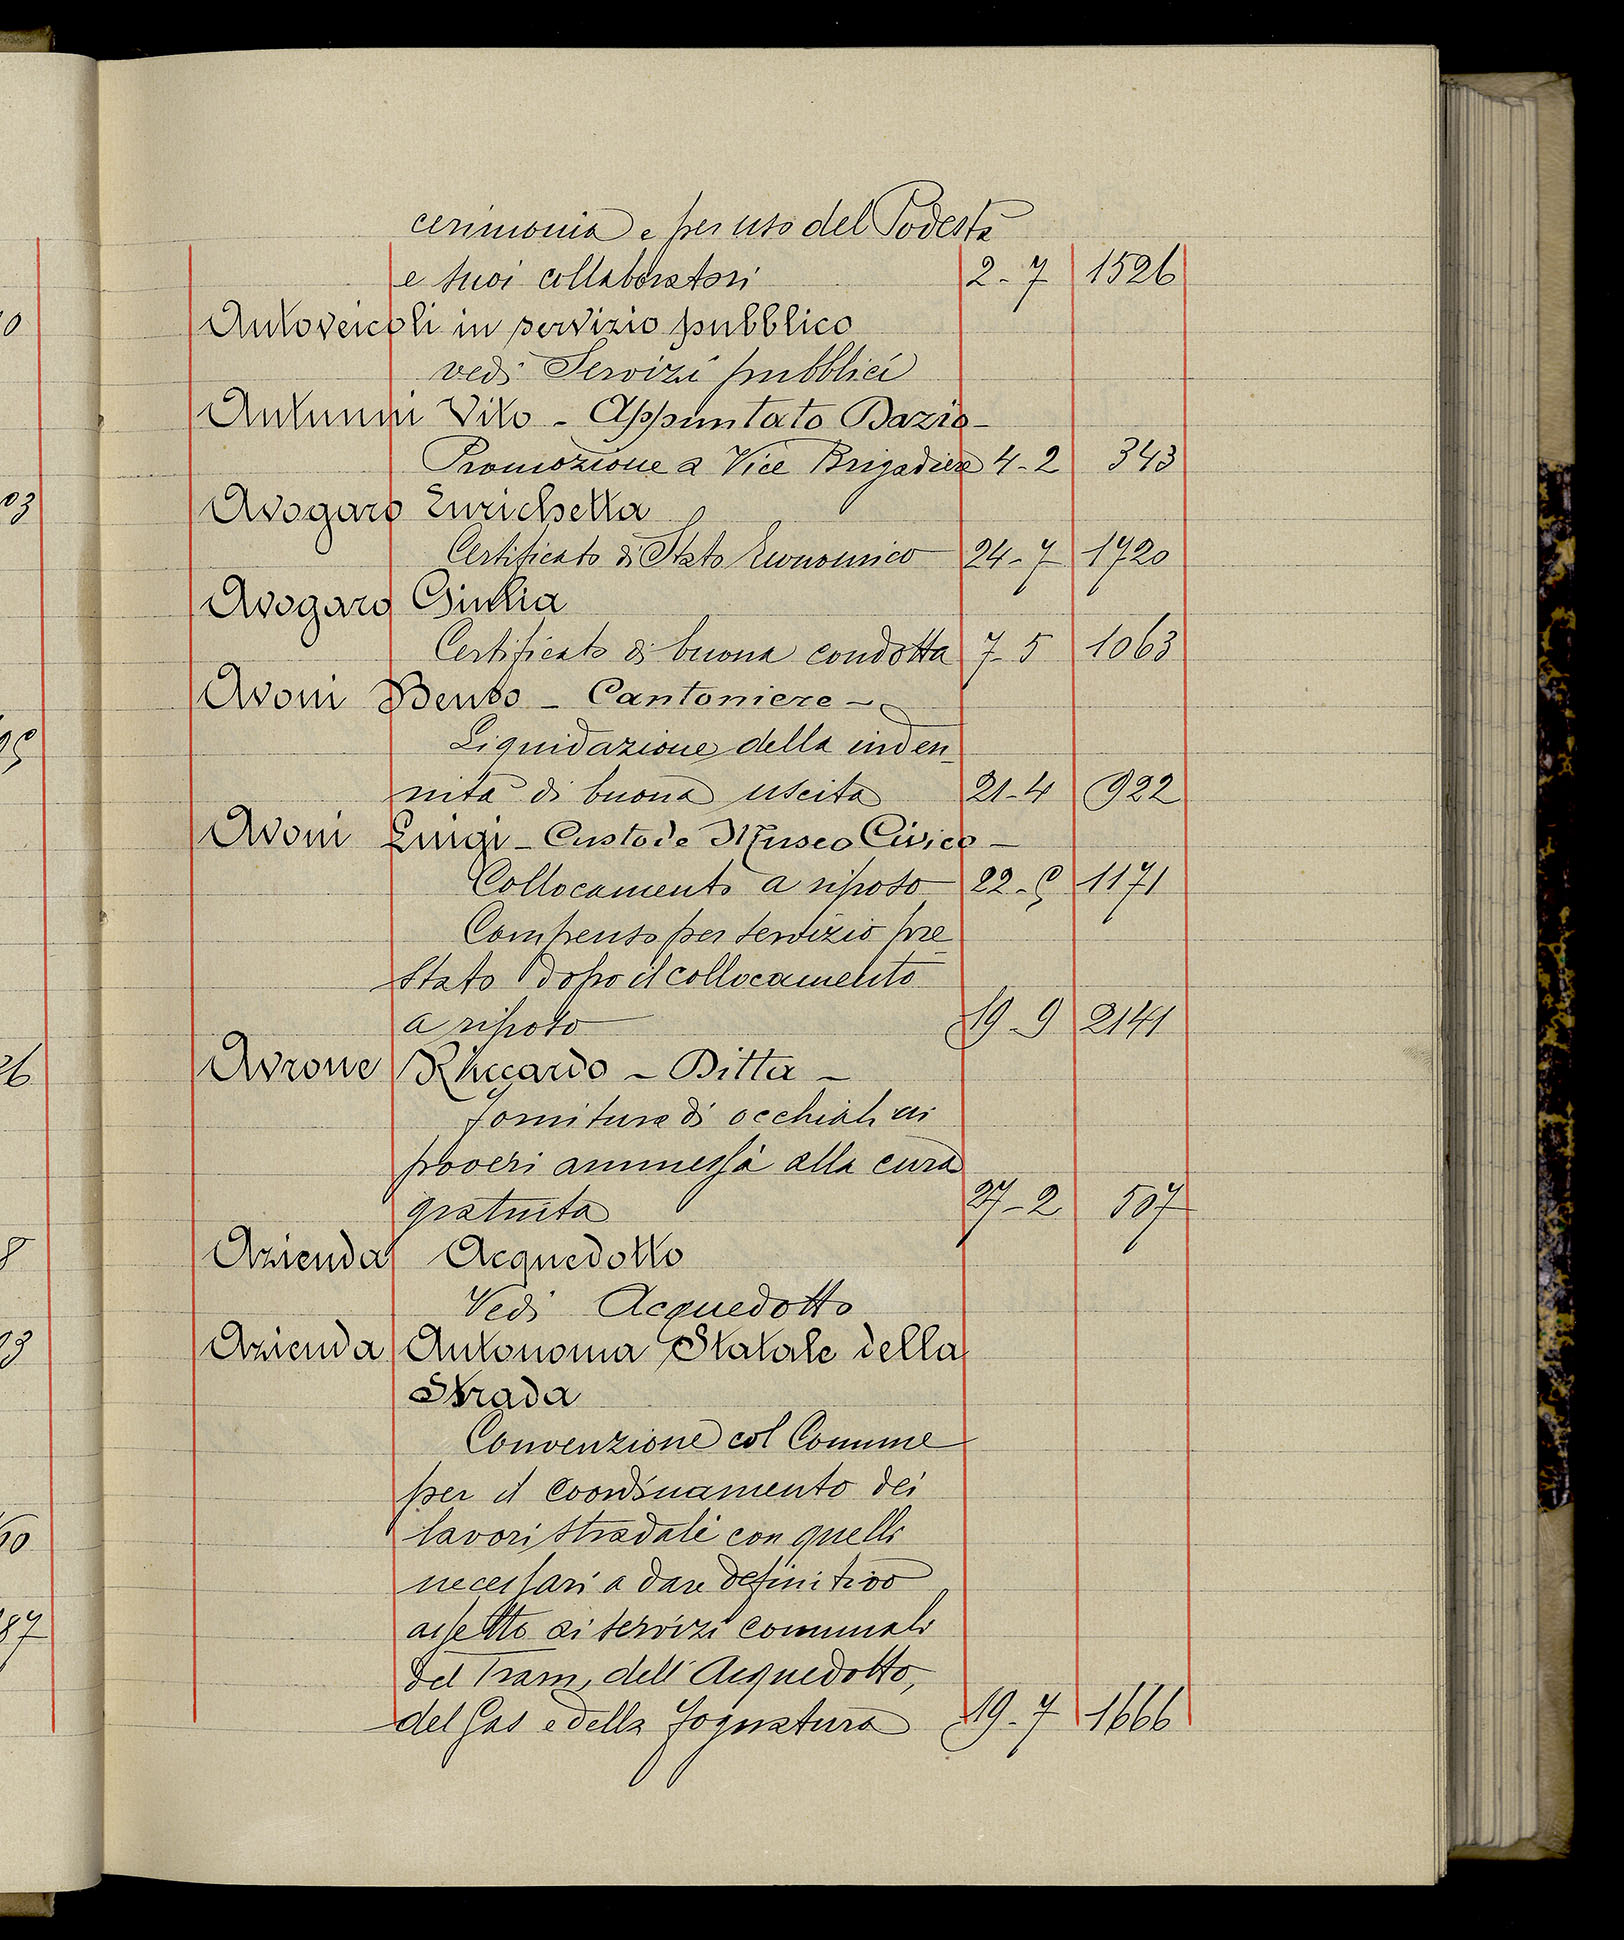 cerimonia e per uso del Podestà
e suoi collaboratori 2-7 1526
Autoveicoli in servizio pubblico
vedi Servizi pubblici
Autunni Vito - Appuntato Dazio -
Promozione a Vice Brigadiere 4-2 343
Avogaro Enrichetta
Certificato di Stato Economico 24-7 1720
Avogaro Giulia
Certificato di buona condotta 7-5 1063
Avoni - Cantoniere -
Liquidazione della inden_
nità di buona uscita 21-4 922
Avoni Luigi - Custode Museo Civico -
Collocamento a riposo 22-5 1171
Compenso per servizio pre_
stato dopo il collocamento
a riposo 19-9 2141
Avrone Riccardo - Ditta -
fornitura di occhiali ai
poveri ammessi alla cura
gratuita 27-2 507
Azienda Acquedotto
Vedi Acquedotto
Azienda Autonoma Statale della
Strada
Convenzione col Comune
per il coordinamento dei
lavori stradali con quelli
necessari a dare definitivo
assetto ai servizi comunali
del Tram, dell'Acquedotto,
del Gas e della fognatura 19-7 1666
0
03
95
26
8
93
90
87